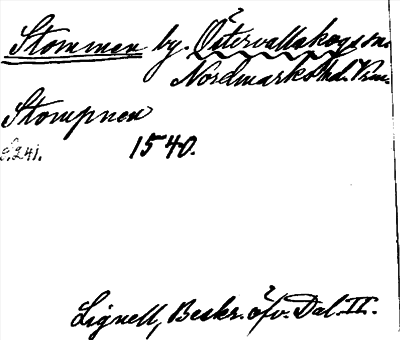 Stommen by. Östervallskogs sn.
Nordmarks hd. Vrm.
Stompnen
S. 241. 1540.
Lignell, Beskr. öfv. Dal. II.